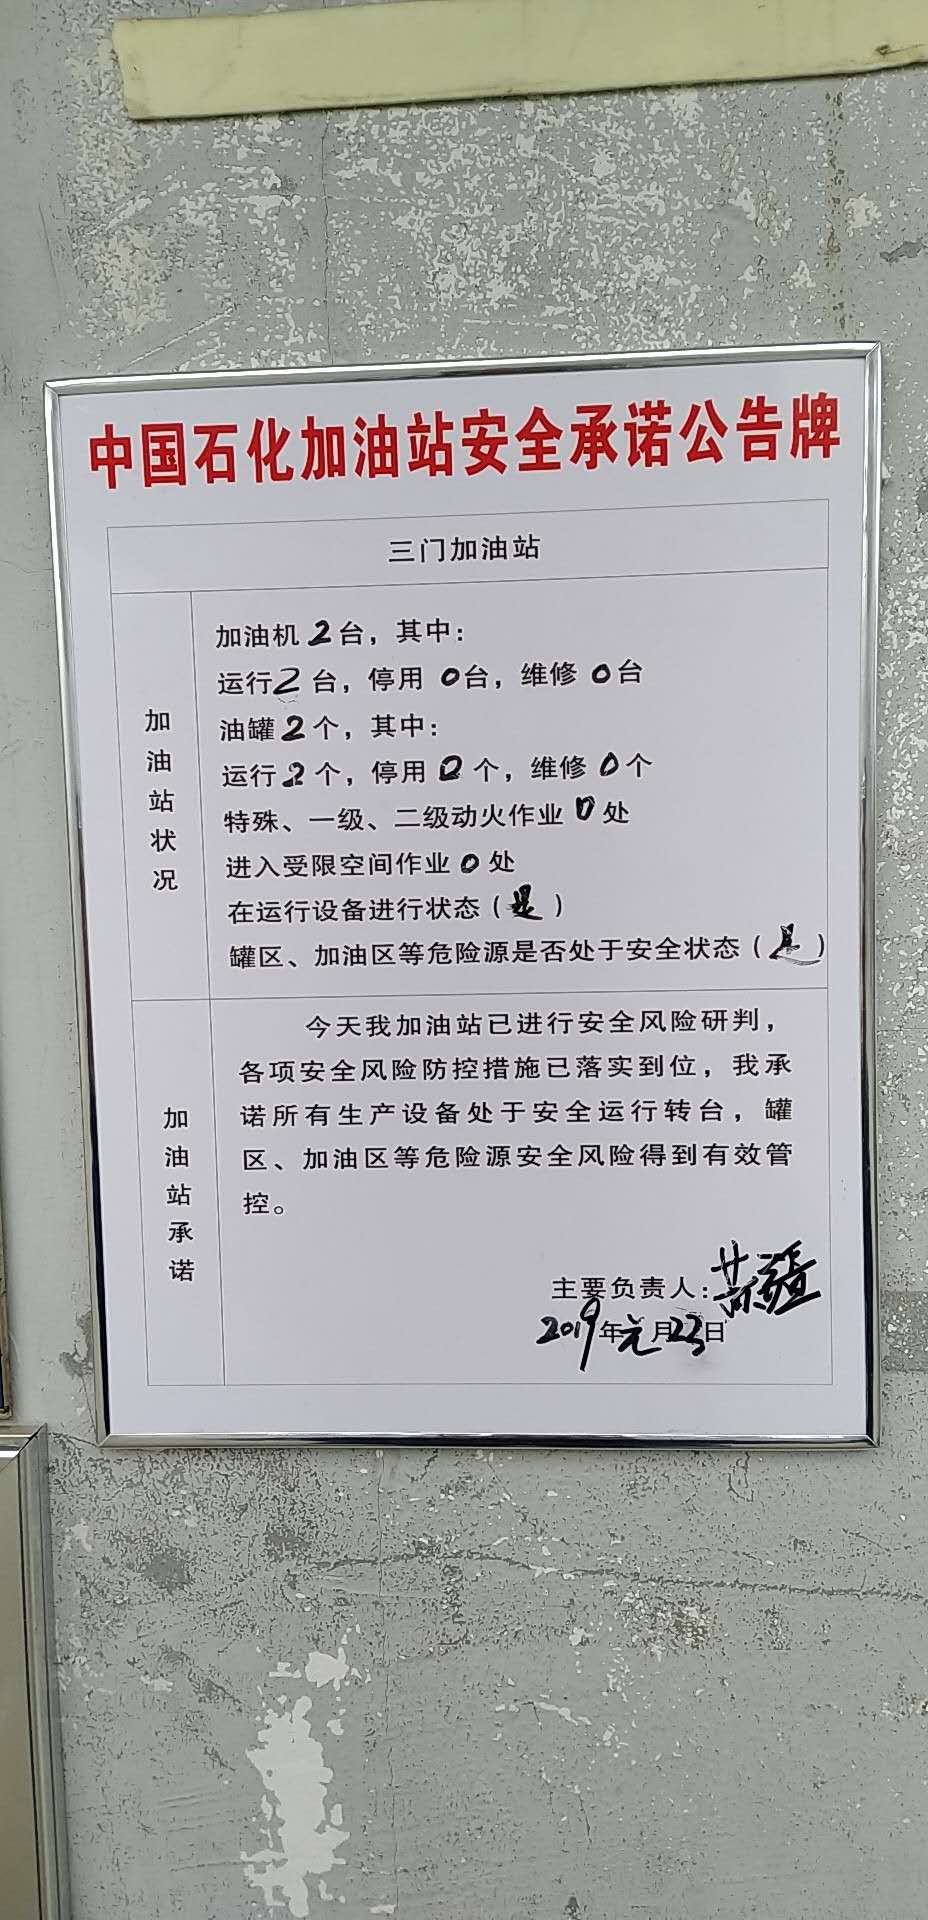 中国石化加油站安全承诺公告牌
三门加油站
加油站状况
加油机2台，其中：
运行2台，停用0台，维修0台
油罐2个，其中：
运行2个，停用0个，维修0个
特殊、一级、二级动火作业0处
进入受限空间作业0处
在运行设备进行状态（是）
罐区、加油区等危险源是否处于安全状态（是）
加油站承诺
今天我加油站已进行安全风险研判，
各项安全风险防控措施已落实到位，我承
诺所有生产设备处于安全运行转台，罐
区、加油区等危险源安全风险得到有效管
控。
主要负责人：
2019年元月23日